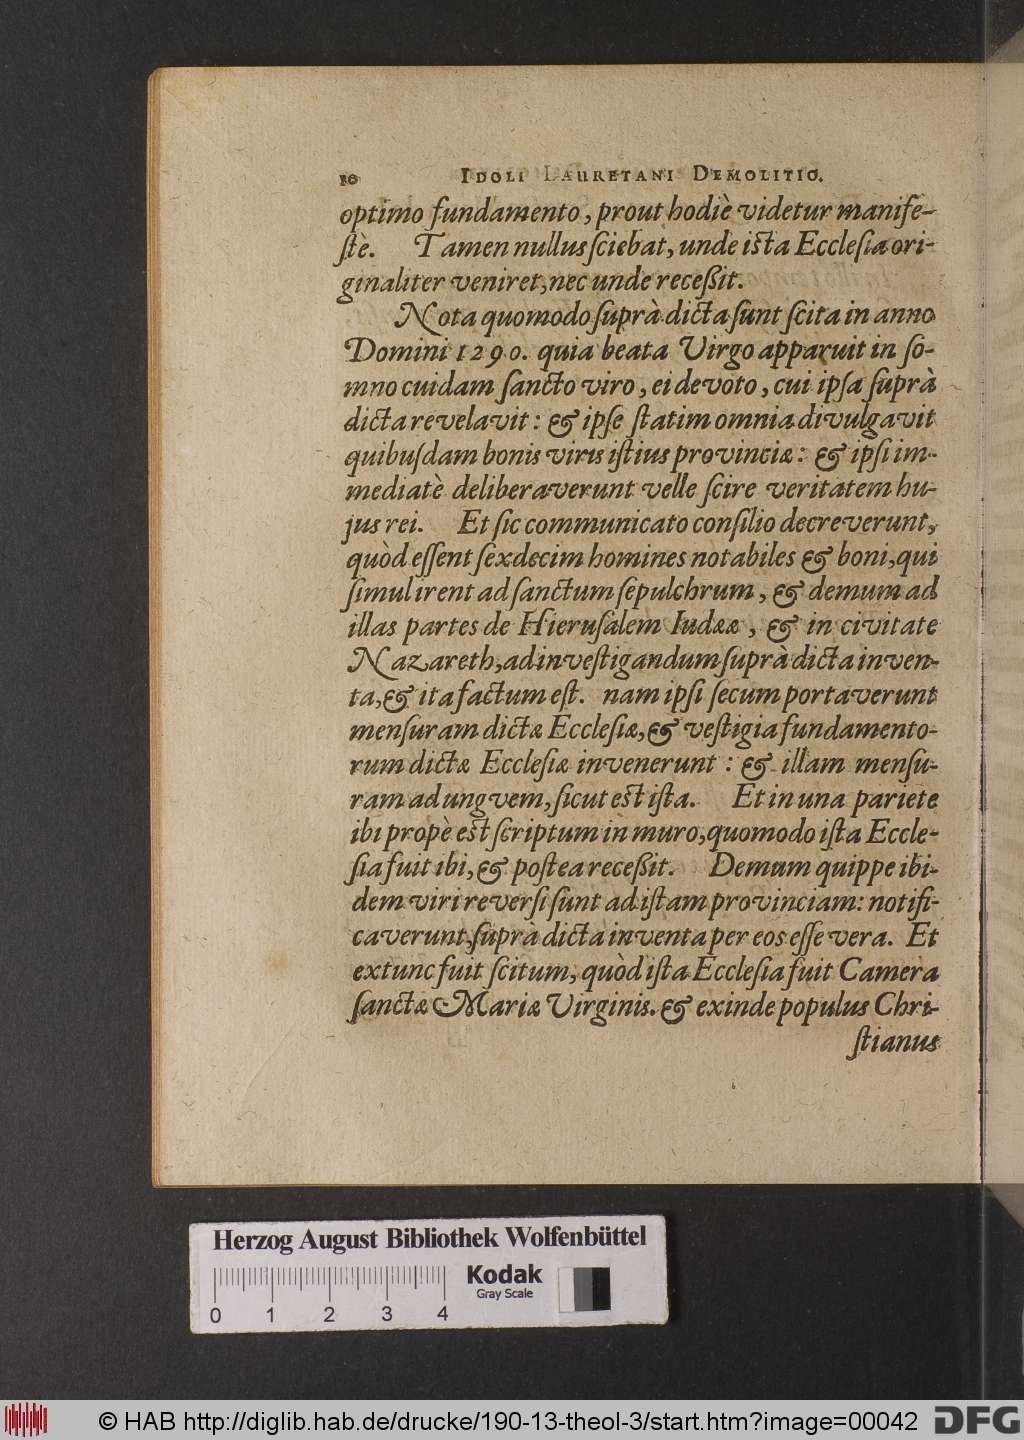 10 IDOLI LAURETANI DEMOLITIO.
optimo fundamento, prout hodiè videtur manife-
ſtè. Tamen nullus ſciebat, unde iſta Eccleſia ori-
ginaliter veniret, nec unde receßit.
Nota quomodo ſuprà dicta ſunt ſcita in anno
Domini 1290. quia beata Virgo apparuit in ſo-
mno cuidam ſancto viro, ei devoto, cui ipſa ſuprà
dicta revelavit: & ipſe ſtatim omnia divulgavit
quibuſdam bonis viris iſtius provinciæ: & ipſi im-
mediatè deliberaverunt velle ſcire veritatem hu-
jus rei. Et ſic communicato conſilio decreverunt,
quòd eſſent ſexdecim homines notabiles & boni, qui
ſimul irent ad ſanctum ſepulchrum, & demum ad
illas partes de Hieruſalem Iudææ, & in civitate
Nazareth, ad inveſtigandum ſuprà dicta inven-
ta, & ita factum eſt. nam ipſi ſecum portaverunt
menſuram dictæ Eccleſiæ, & veſtigia fundamento-
rum dictæ Eccleſiæ invenerunt: & illam menſu-
ram ad ungvem, ſicut eſt iſta. Et in una pariete
ibi propè eſt ſcriptum in muro, quomodo iſta Eccle-
ſia fuit ibi, & poſtea receßit. Demum quippe ibi-
dem viri reverſi ſunt ad iſtam provinciam: notifi-
caverunt, ſuprà dicta inventa per eos eſſe vera. Et
extunc fuit ſcitum, quòd iſta Eccleſia fuit Camera
ſanctæ Mariæ Virginis. & exinde populus Chri-
ſtianus
Herzog August Bibliothek Wolfenbüttel
Kodak
Gray Scale
0 1 2 3 4
© HAB http://diglib.hab.de/drucke/190-13-theol-3/start.htm?image=00042
DFG